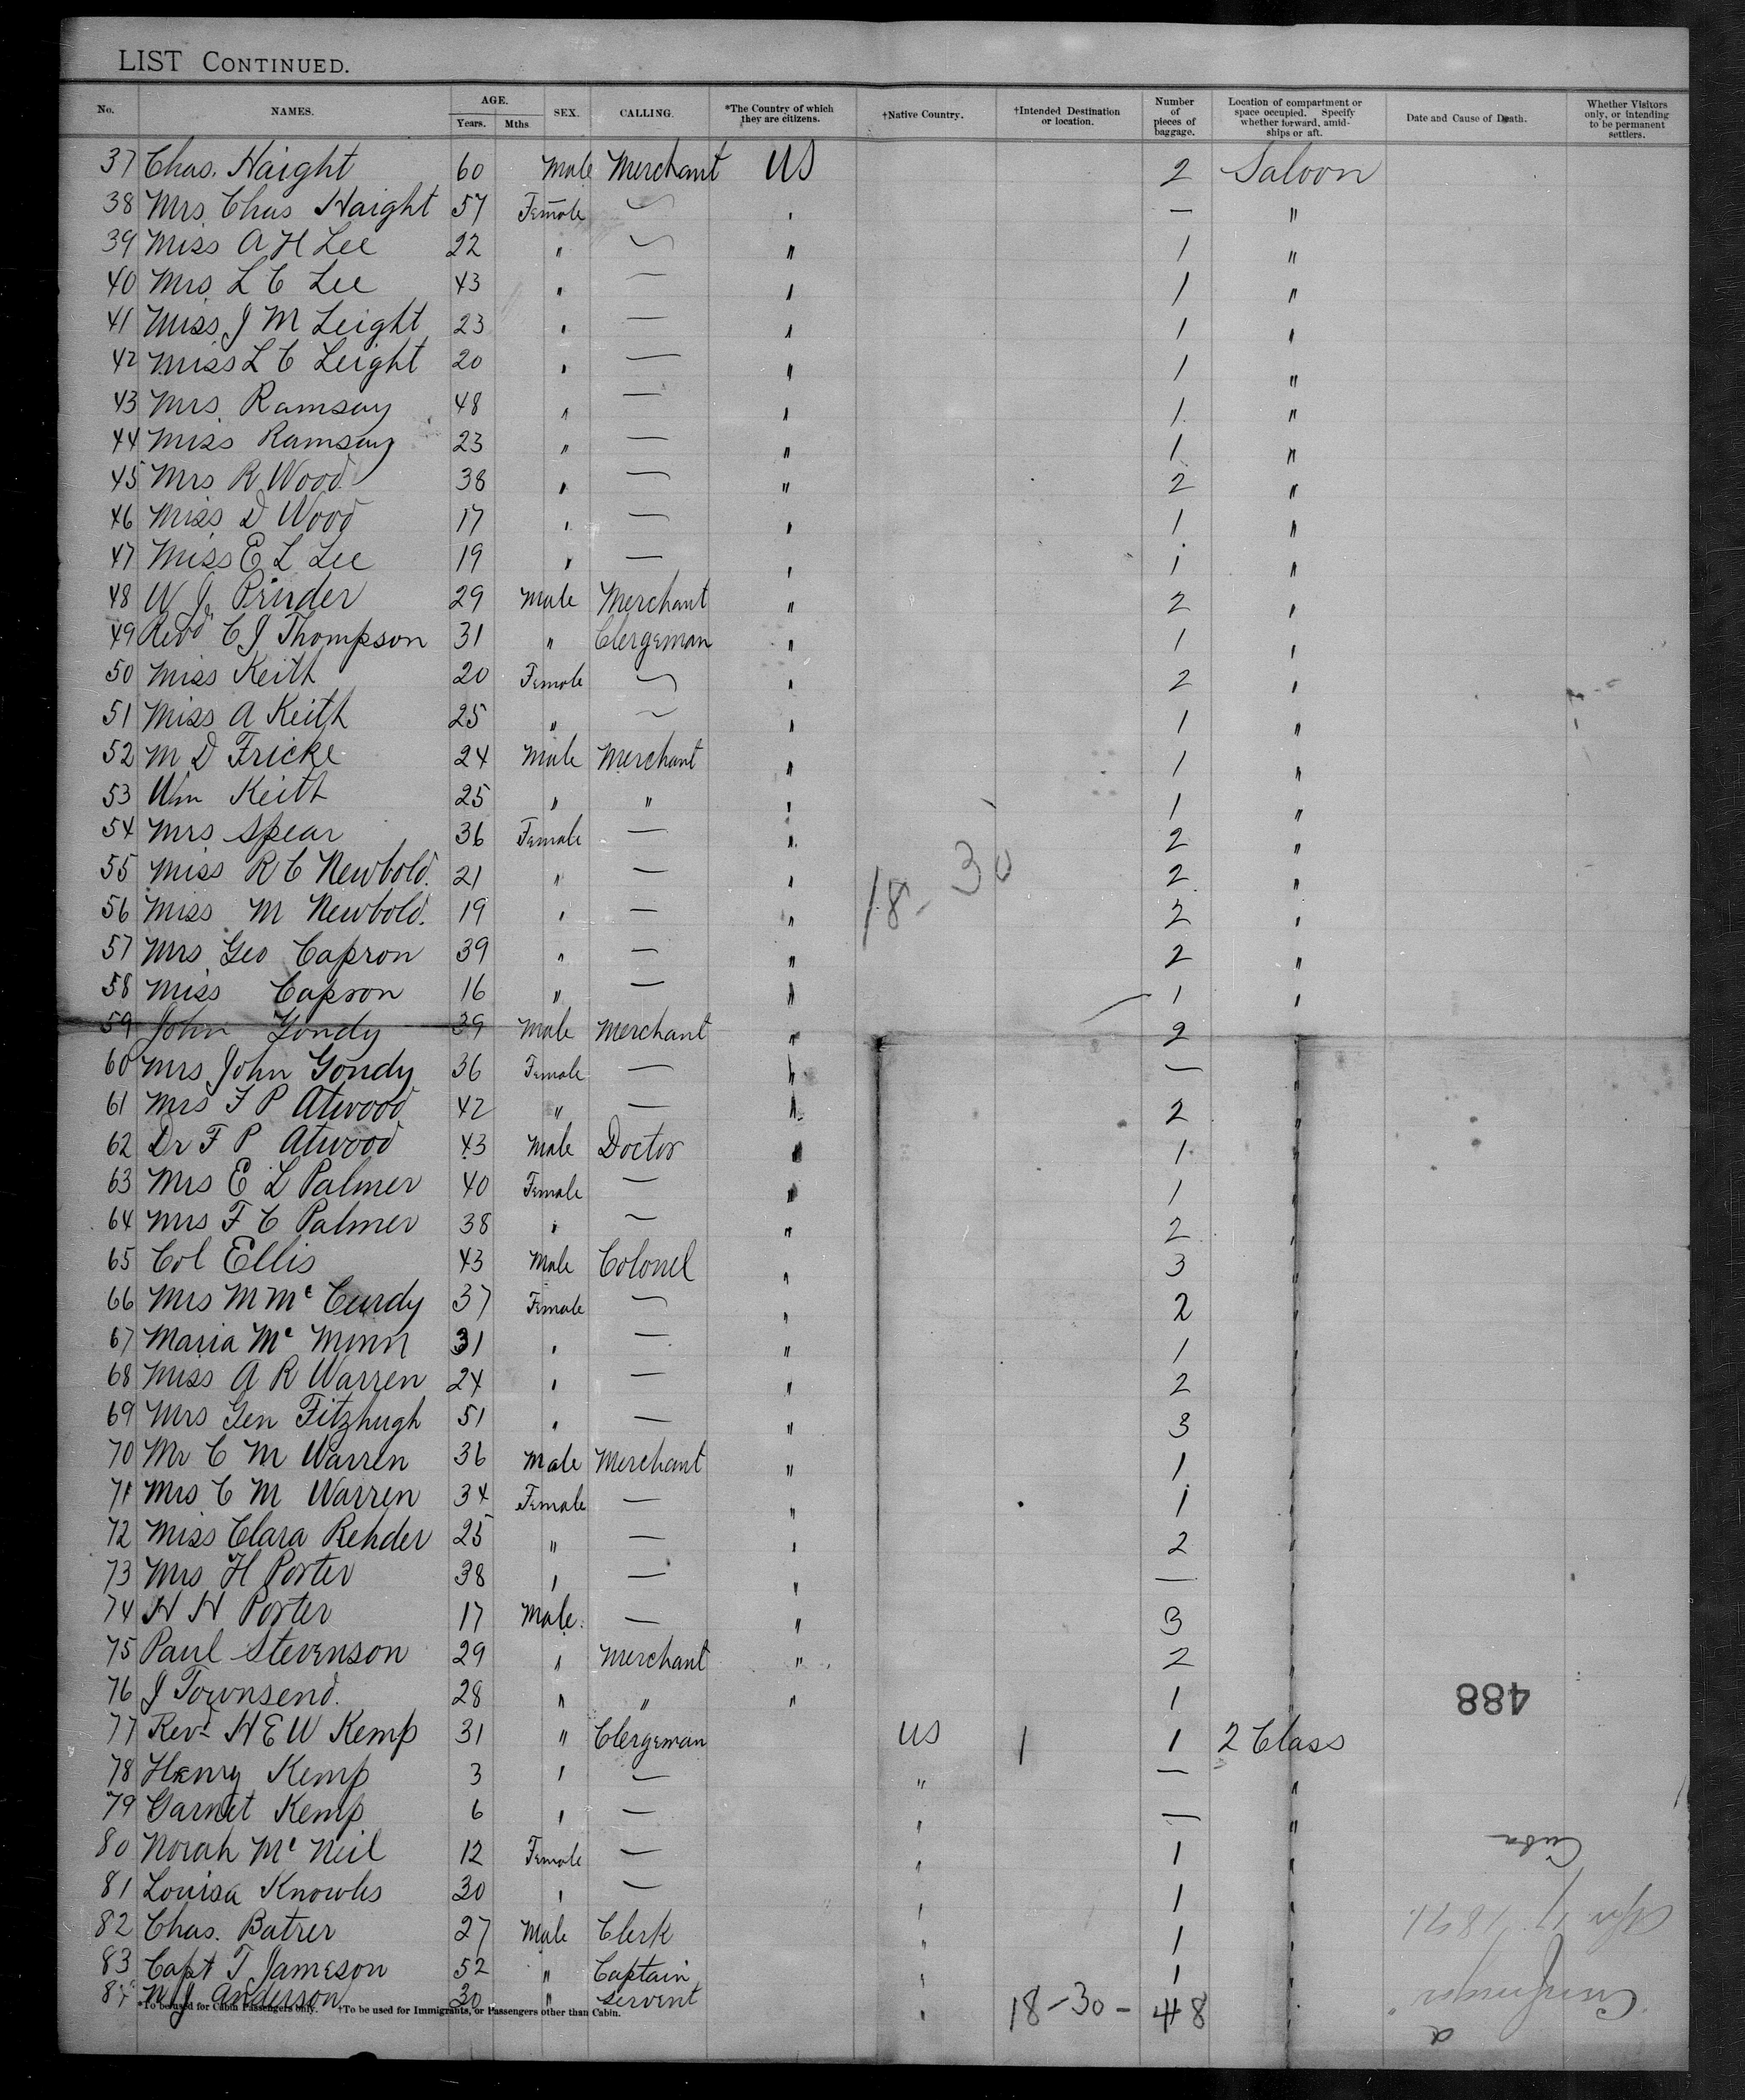 LIST CONTINUED.
No. NAMES. AGE. Years. Mths. SEX. CALLING. *The Country of which they are citizens. †Native Country. †Intended Destination or location. Number of pieces of baggage. Location of compartment or space occupied. Specify whether forward, amidships or aft. Date and Cause of Death. Whether Visitors only, or intending to be permanent settlers.
37 Chas. Haight 60 Male Merchant US 2 Saloon
38 Mrs Chas Haight 57 Female — " — "
39 Miss A H Lee 22 " — " 1 "
40 Mrs L C Lee 43 " — " 1 "
41 Miss J M Leight 23 " — " 1 "
42 Miss L C Leight 20 " — " 1 "
43 Mrs Ramsay 48 " — " 1 "
44 Miss Ramsay 23 " — " 1 "
45 Mrs R Wood 38 " — " 2 "
46 Miss D Wood 17 " — " 1 "
47 Miss E L Lee 19 " — " 1 "
48 W J Prinder 29 Male Merchant " 2 "
49 Revd C J Thompson 31 " Clergeman " 1 "
50 Miss Keith 20 Female — " 2 "
51 Miss A Keith 25 " — " 1 "
52 M D Fricke 24 Male Merchant " 1 "
53 Wm Keith 25 " " " 1 "
54 Mrs Spear 36 Female — " 2 "
55 Miss R C Newbold. 21 " — " 2 "
18-30
56 Miss M Newbold. 19 " — " 2 "
57 Mrs Geo Capron 39 " — " 2 "
58 Miss Capron 16 " — " 1 "
59 John Gondy 39 Male Merchant " 2 "
60 Mrs John Gondy 36 Female — " — "
61 Mrs F P Atwood 42 " — " 2 "
62 Dr F P Atwood 43 Male Doctor " 1 "
63 Mrs E L Palmer 40 Female — " 1 "
64 Mrs F C Palmer 38 " — " 2 "
65 Col Ellis 43 Male Colonel " 3 "
66 Mrs M Mc Curdy 37 Female — " 2 "
67 Maria Mc Minn 31 " — " 1 "
68 Miss A R Warren 24 " — " 2 "
69 Mrs Gen Fitzhugh 51 " — " 3 "
70 Mr C M Warren 36 Male Merchant " 1 "
71 Mrs C M Warren 34 Female — " 1 "
72 Miss Clara Rehder 25 " — " 2 "
73 Mrs H Porter 38 " — " — "
74 H H Porter 17 Male — " 3 "
75 Paul Stevenson 29 " Merchant " 2 "
76 J Townsend. 28 " " " 1 "
488
77 Revd H E W Kemp 31 " Clergeman US 1 1 2 Class
78 Henry Kemp 3 " — " — "
79 Garnet Kemp 6 " — " — "
80 Norah Mc Neil 12 Female — " 1 "
Cuba
81 Louisa Knowles 30 " — " 1 "
82 Chas. Batrer 27 Male Clerk " 1 "
83 Capt T Jameson 52 " Captain " 1 "
84 Anderson 30 " Servent "
18-30- 48
*To be used for Cabin Passengers only. †To be used for Immigrants, or Passengers other than Cabin.